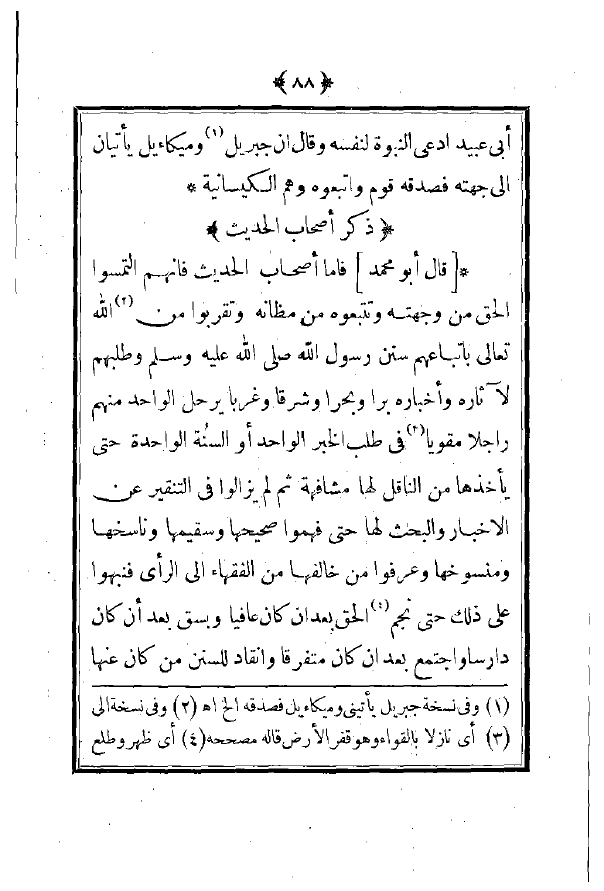 ﴿ ٨٨ ﴾
أبى عبيد ادعى النبوة لنفسه وقال ان جبريل (١) وميكاءيل يأتيان
الى جهته فصدقه قوم واتبعوه وهم الكيسانية *
﴿ ذكر أصحاب الحديث ﴾
*[ قال أبو محمد ] فاما أصحاب الحديث فانهم التمسوا
الحق من وجهته وتتبعوه من مظانه وتقربوا من (٢) الله
تعالى بأتباعهم سنن رسول الله صلى الله عليه وسلم وطلبهم
لآثاره وأخباره برا وبحرا وشرقا وغربا يرحل الواحد منهم
راجلا مقويا (٣) فى طلب الخبر الواحد أو السُنة الواحدة حتى
يأخذها من الناقل لها مشافهة ثم لم يزالوا فى التنقير عن
الاخبار والبحث لها حتى فهموا صحيحها وسقيمها وناسخها
ومنسوخها وعرفوا من خالفها من الفقهاء الى الرأى فنبهوا
على ذلك حتى نجم (٤) الحق بعد ان كان عافيا وبسق بعد أن كان
دارسا واجتمع بعد ان كان متفرقا وانقاد للسنن من كان عنها
(١) وفى نسخة جبريل يأتينى وميكاءيل فصدقه الخ اه (٢) وفى نسخة الى
(٣) أى نازلا بالقواء وهو قفر الأرض قاله مصححه (٤) أى ظهر وطلع